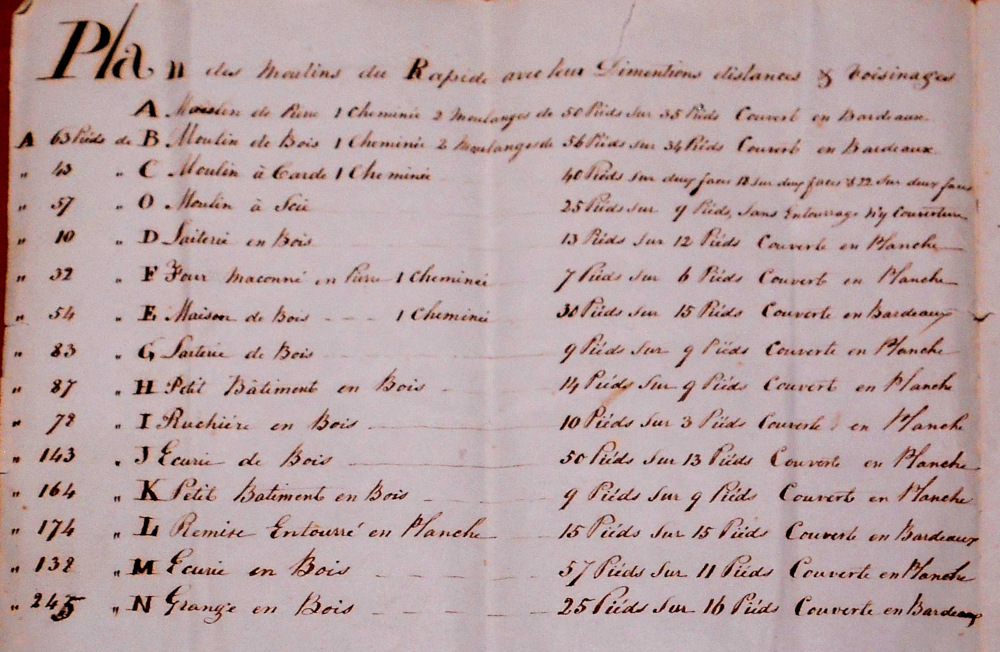 Plan des Moulins du Rapide avec leur Dimentions distances & Voisinages
A Moulin de Pierre 1 Cheminée 2 Moulanges de 50 Pièds sur 35 Pièds Couvert en Bardeaux
A 63 Pièds de B Moulin de Bois 1 Cheminée 2 Moulanges de 56 Pièds sur 34 Pièds Couvert en Bardeaux
" 43 " C Moulin à Carde 1 Cheminée 40 Pièds sur deux faces 18 sur deux faces & 22 sur deux faces
" 57 " O Moulin à Scie 25 Pièds sur 9 Pièds, Sans Entourrage n'y Couverture
" 10 " D Laiterie en Bois 13 Pièds sur 12 Pièds Couverte en Planche
" 32 " F Four Maconné en Pierre 1 Cheminée 7 Pièds sur 6 Pièds Couvert en Planche
" 54 " E Maison de Bois 1 Cheminée 30 Pièds sur 15 Pièds Couverte en Bardeaux
" 83 " G Laiterie de Bois 9 Pièds Sur 9 Pièds Couverte en Planche
" 87 " H Petit Bâtiment en Bois 14 Pièds Sur 9 Pièds Couvert en Planche
" 72 " I Ruchière en Bois 10 Pièds Sur 3 Pièds Couverte en Planche
" 143 " J Ecurie de Bois 50 Pièds Sur 13 Pièds Couverte en Planche
" 164 " K Petit Batiment en Bois 9 Pièds Sur 9 Pièds Couverte en Planche
" 174 " L Remise Entourré en Planche 15 Pièds Sur 15 Pièds Couverte en Bardeaux
" 132 " M Ecurie en Bois 57 Pièds Sur 11 Pièds Couverte en Planche
" 245 " N Grange en Bois 25 Pièds Sur 16 Pièds Couverte en Bardeaux